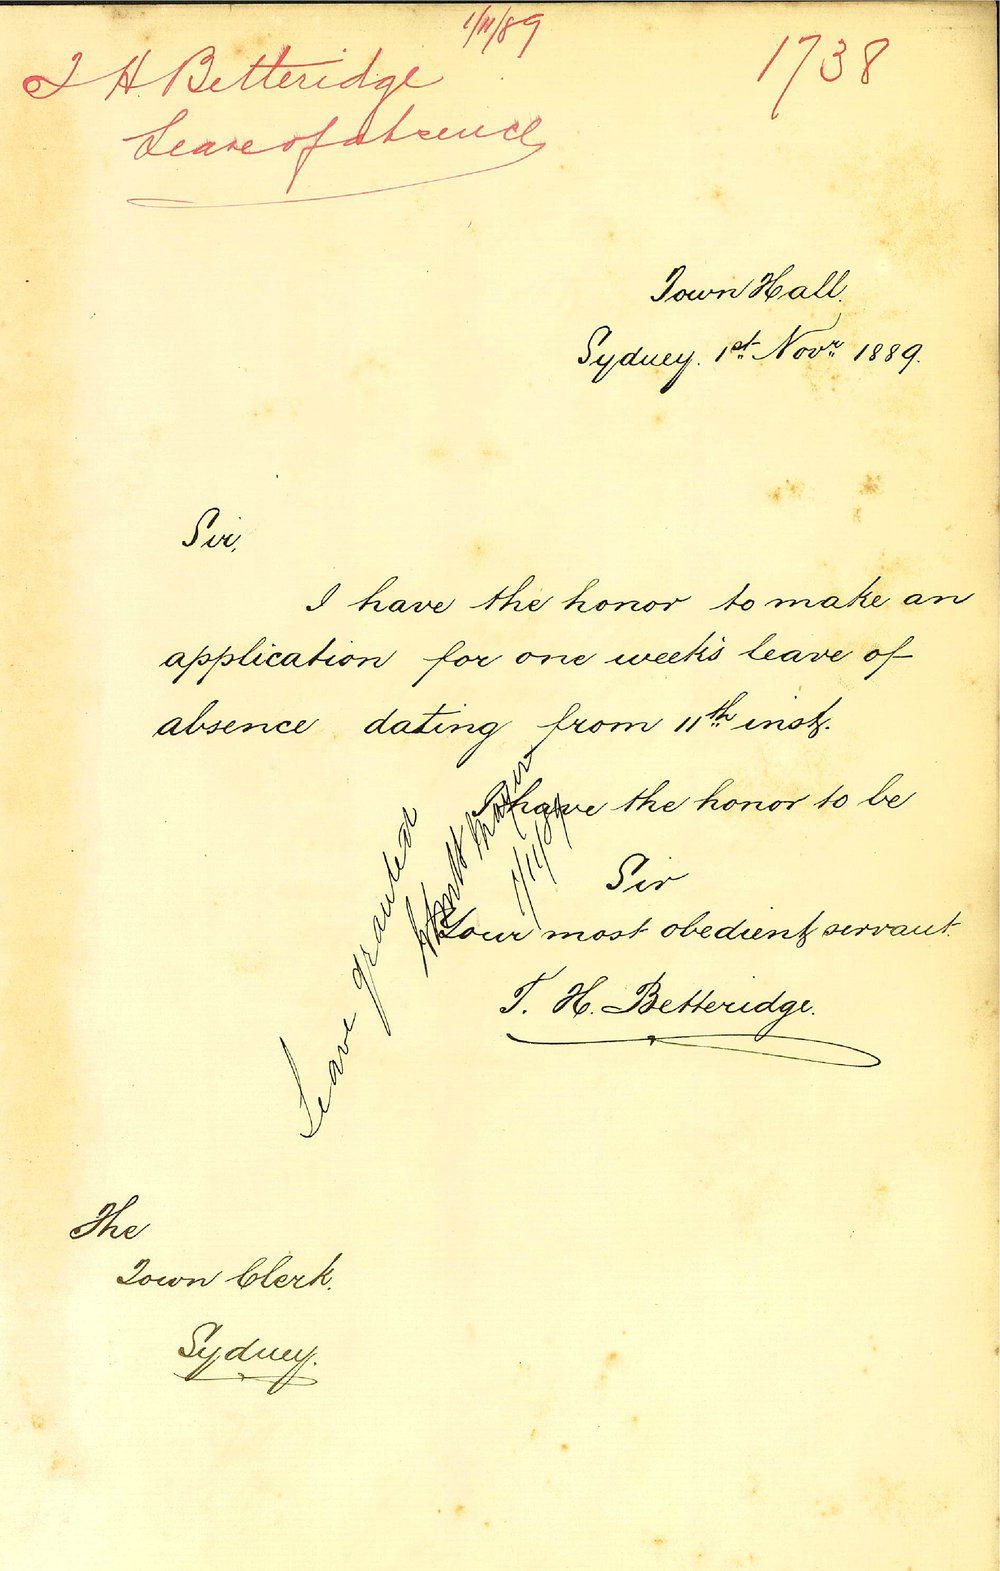 1/11/89
1738
T H Betteridge
Leave of absence
Town Hall,
Sydney. 1st Novr 1889.
Sir,
I have the honor to make an
application for one week's leave of
absence dating from 11th inst.
I have the honor to be
Sir
Your most obedient servant.
T. H. Betteridge.
Leave granted
1/11/89
The
Town Clerk.
Sydney.